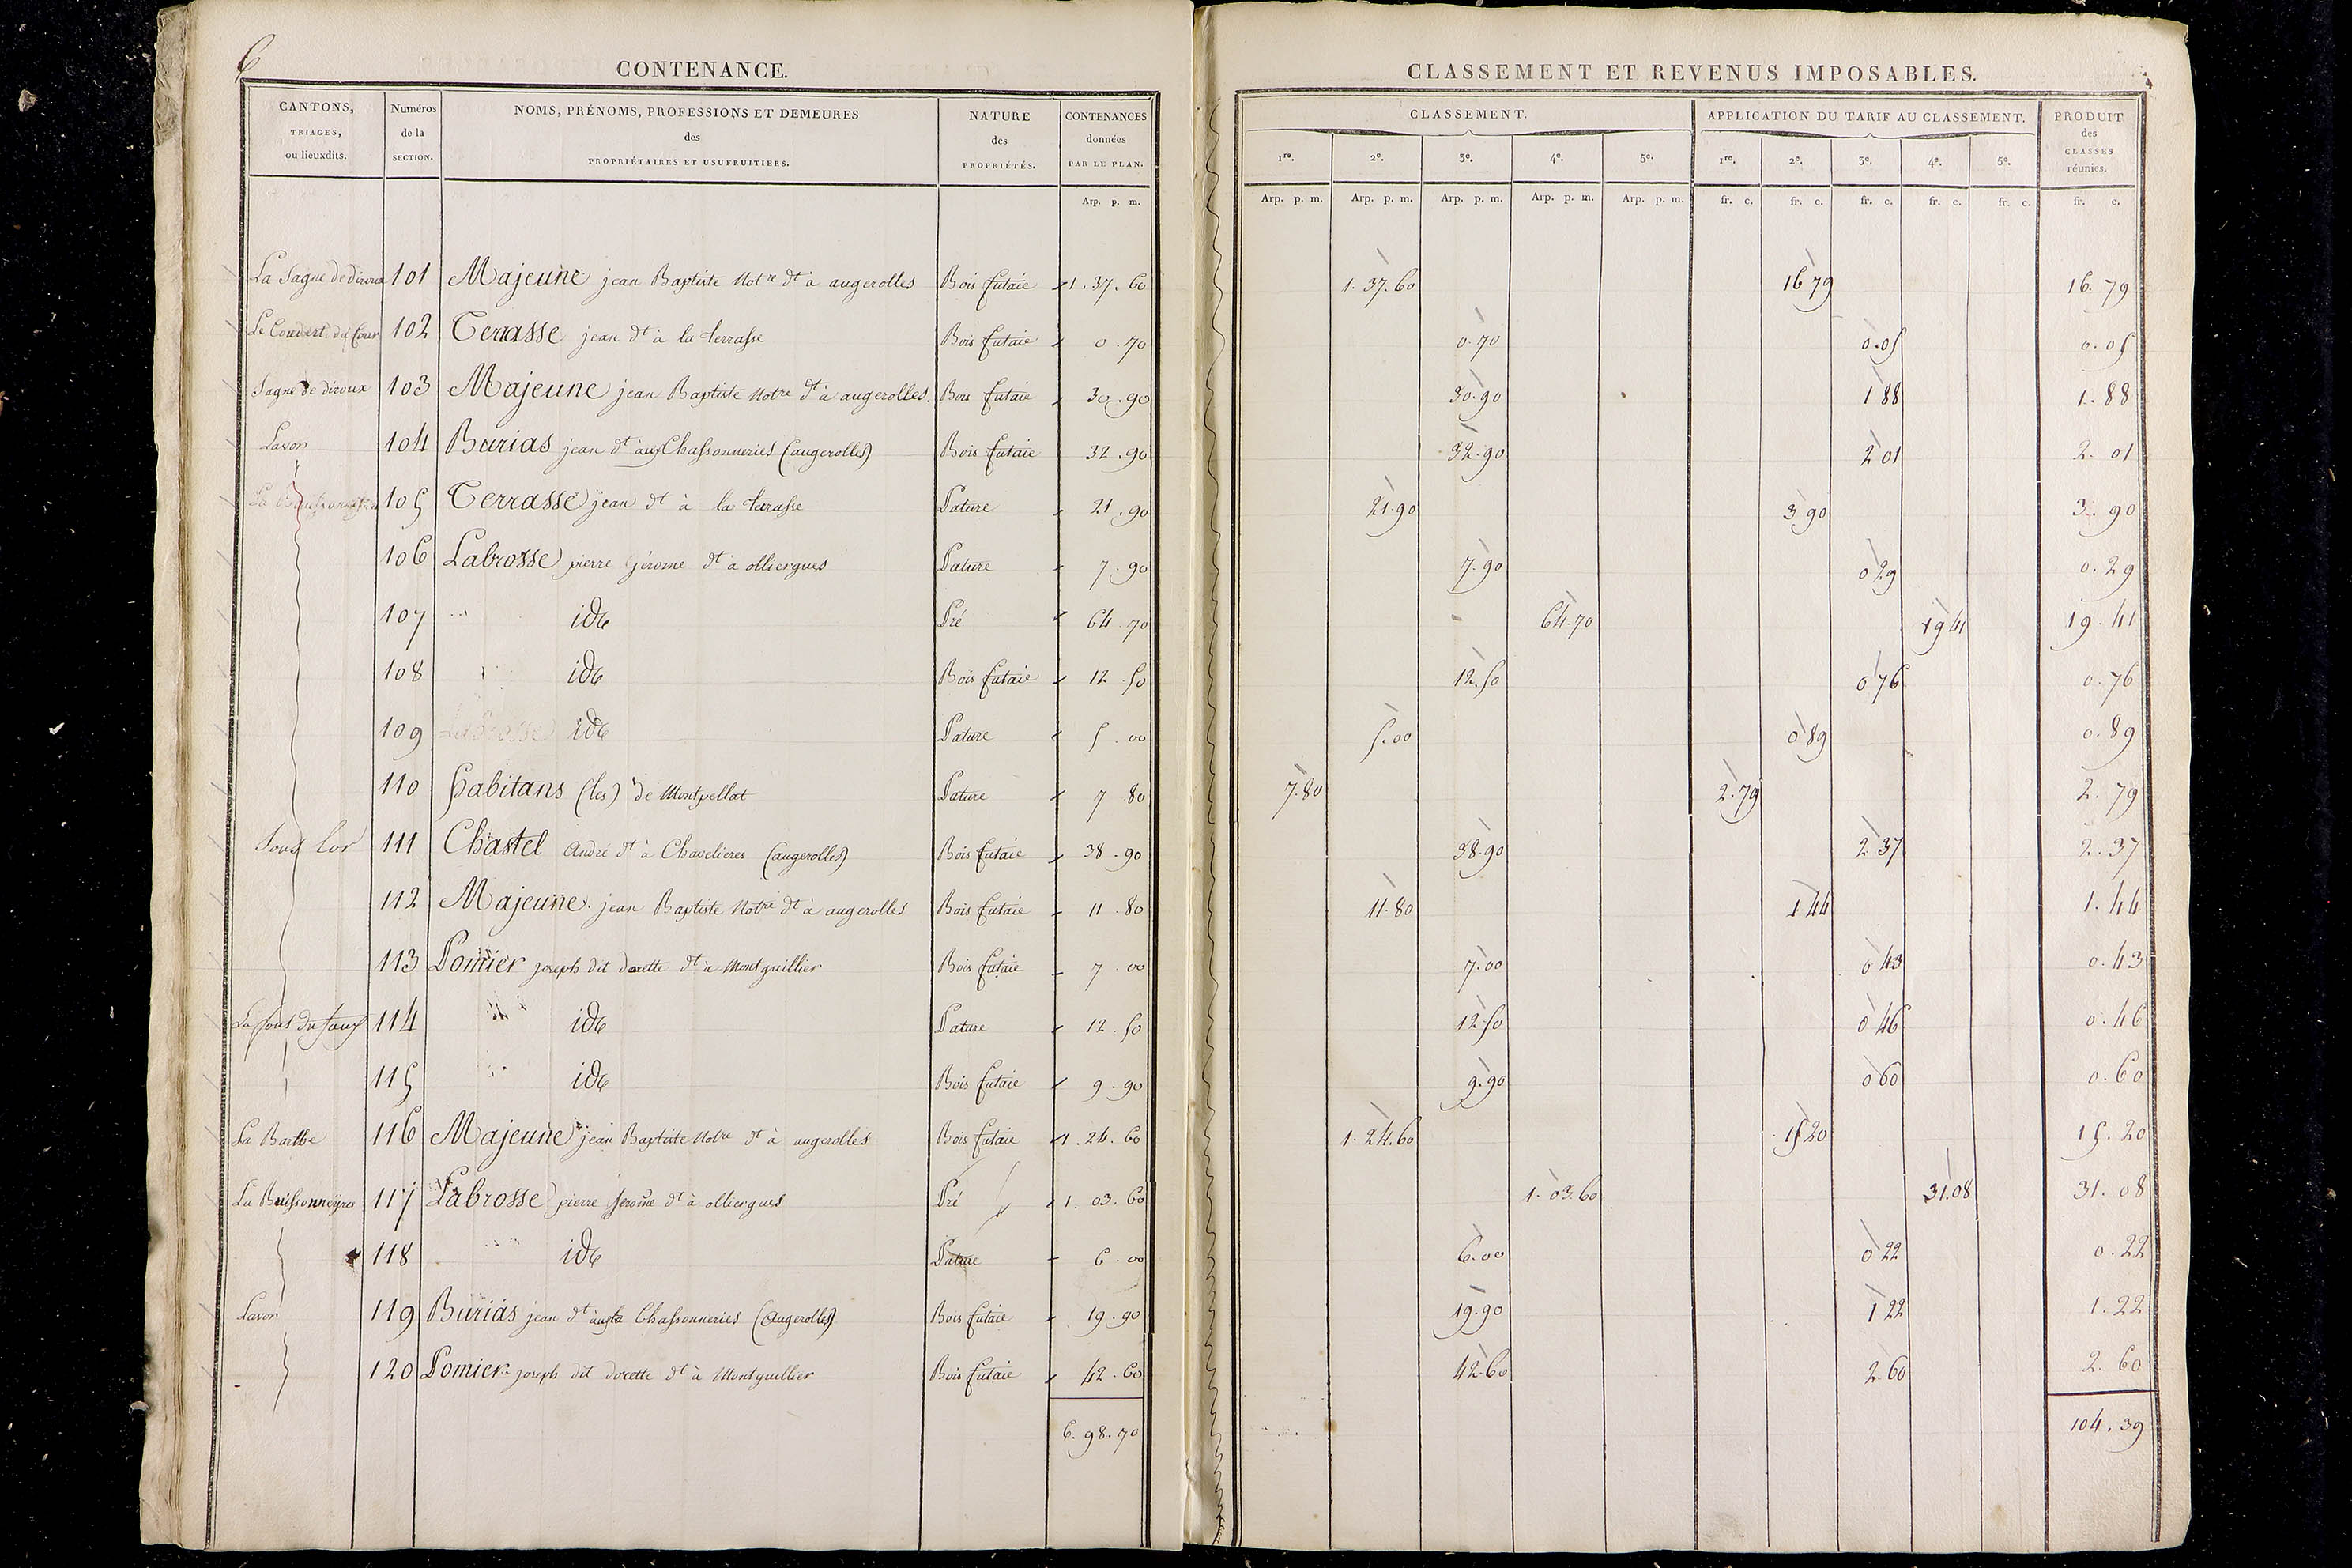 6
CONTENANCE.
CANTONS, TRIAGES, ou lieuxdits. Numéros de la SECTION. NOMS, PRÉNOMS, PROFESSIONS ET DEMEURES des PROPRIÉTAIRES ET USUFRUITIERS. NATURE des PROPRIÉTÉS. CONTENANCES données PAR LE PLAN.
Arp. p. m.
La Sagne de diroux 101 Majeune jean Baptiste Not.re d.t à augerolles Bois futaie 1. 37. 60
Le Coudert du Cour 102 Terrasse jean d.t à la terrasse Bois futaie 0. 70
Sagne de diroux 103 Majeune jean Baptiste Notre d.t à augerolles. Bois futaie 30. 90
Lavor 104 Burias jean d.t aux Chassonneries (augerolles) Bois futaie 32. 90
105 Terrasse jean d.t à la terrasse Pature 21. 90
106 Labrosse pierre jérome d.t à olliergues Pature 7. 90
107 ide Pré 64. 70
108 ide Bois futaie 12. 50
109 ide Pature 5. 00
110 habitans (les) de Montpellat Pature 7. 80
111 Chastel André d.t à Chavelieres (augerolles) Bois futaie 38. 90
112 Majeune jean Baptiste Notre d.t à augerolles Bois futaie 11. 80
113 Pomier joseph dit dorette d.t à Montguillier Bois futaie 7. 00
114 ide Pature 12. 50
115 ide Bois futaie 9. 90
La Barthe 116 Majeune jean Baptiste Notre d.t à augerolles Bois futaie 1. 24. 60
La Buissonneyre 117 Labrosse pierre jerome d.t à olliergues Pré 1. 03. 60
118 ide Pature 6. 00
Lavor 119 Burias jean d.t Chassonneries (augerolles) Bois futaie 19. 90
120 Pomier joseph dit dorette d.t à Montguillier Bois futaie 42. 60
6. 98. 70
CLASSEMENT ET REVENUS IMPOSABLES.
CLASSEMENT. APPLICATION DU TARIF AU CLASSEMENT. PRODUIT des CLASSES réunies.
1re. 2e. 3e. 4e. 5e. 1re. 2e. 3e. 4e. 5e.
Arp. p. m. Arp. p. m. Arp. p. m. Arp. p. m. Arp. p. m. fr. c. fr. c. fr. c. fr. c. fr. c. fr. c.
1. 37. 60 16 79 16. 79
0. 70 0. 05 0. 05
30. 90 1 88 1. 88
32. 90 2 01 2. 01
21. 90 3 90 3. 90
7. 90 0 29 0. 29
64. 70 19 41 19. 41
12. 50 0 76 0. 76
5. 00 0 89 0. 89
7. 80 2. 79 2. 79
38. 90 2 37 2. 37
11. 80 1 44 1. 44
7. 00 0 43 0. 43
12. 50 0 46 0. 46
9. 90 0 60 0. 60
1. 24. 60 15 20 15. 20
1. 03. 60 31. 08 31. 08
6. 00 0 22 0. 22
19. 90 1 22 1. 22
42. 60 2 60 2. 60
104. 39